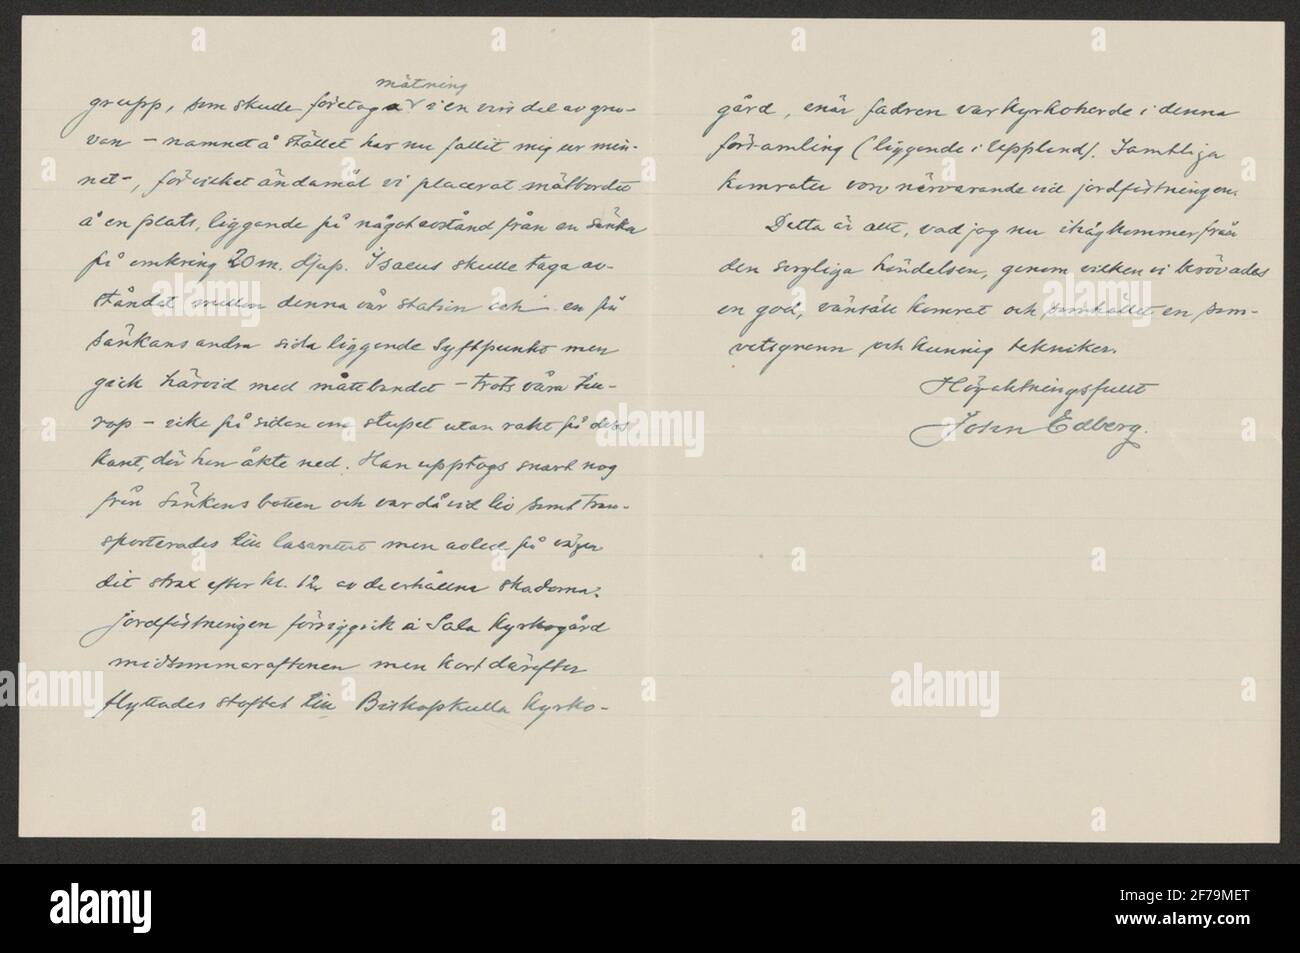 mätning
grupp, som skulle företaga i en viss del av gru-
van – namnet å stället har nu fallit mig ur min-
net –, för vilket ändamål vi placerat mätbordet
å en plats, liggande på något avstånd från en sänka
på omkring 20 m. djup. Isaeus skulle taga av-
ståndet mellan denna vår station och en på
sänkans andra sida liggande syftpunkt men
gick härvid med måttbandet – trots våra till-
rop – icke på sidan om stupet utan rakt på dess
kant, där han åkte ned. Han upptogs snart nog
från sänkans botten och var då vid liv samt tran-
sporterades till lasarettet men avled på vägen
dit strax efter kl. 12, av de erhållna skadorna.
Jordfästningen försiggick å Sala kyrkogård
midsommaraftonen men kort därefter
flyttades stoftet till Biskopskulla kyrko-
gård, enär fadren var kyrkoherde i denna
församling (liggande i Uppland). Samtliga
kamrater voro närvarande vid jordfästningen.
Detta är allt, vad jag nu ihågkommer från
den sorgliga händelsen, genom vilken vi berövades
en god, vänsäll kamrat och samhället en sam-
vetsgrann och kunnig tekniker.
Högaktningsfullt
John Edberg.
alamy
Image ID: 2F79MET
www.alamy.com